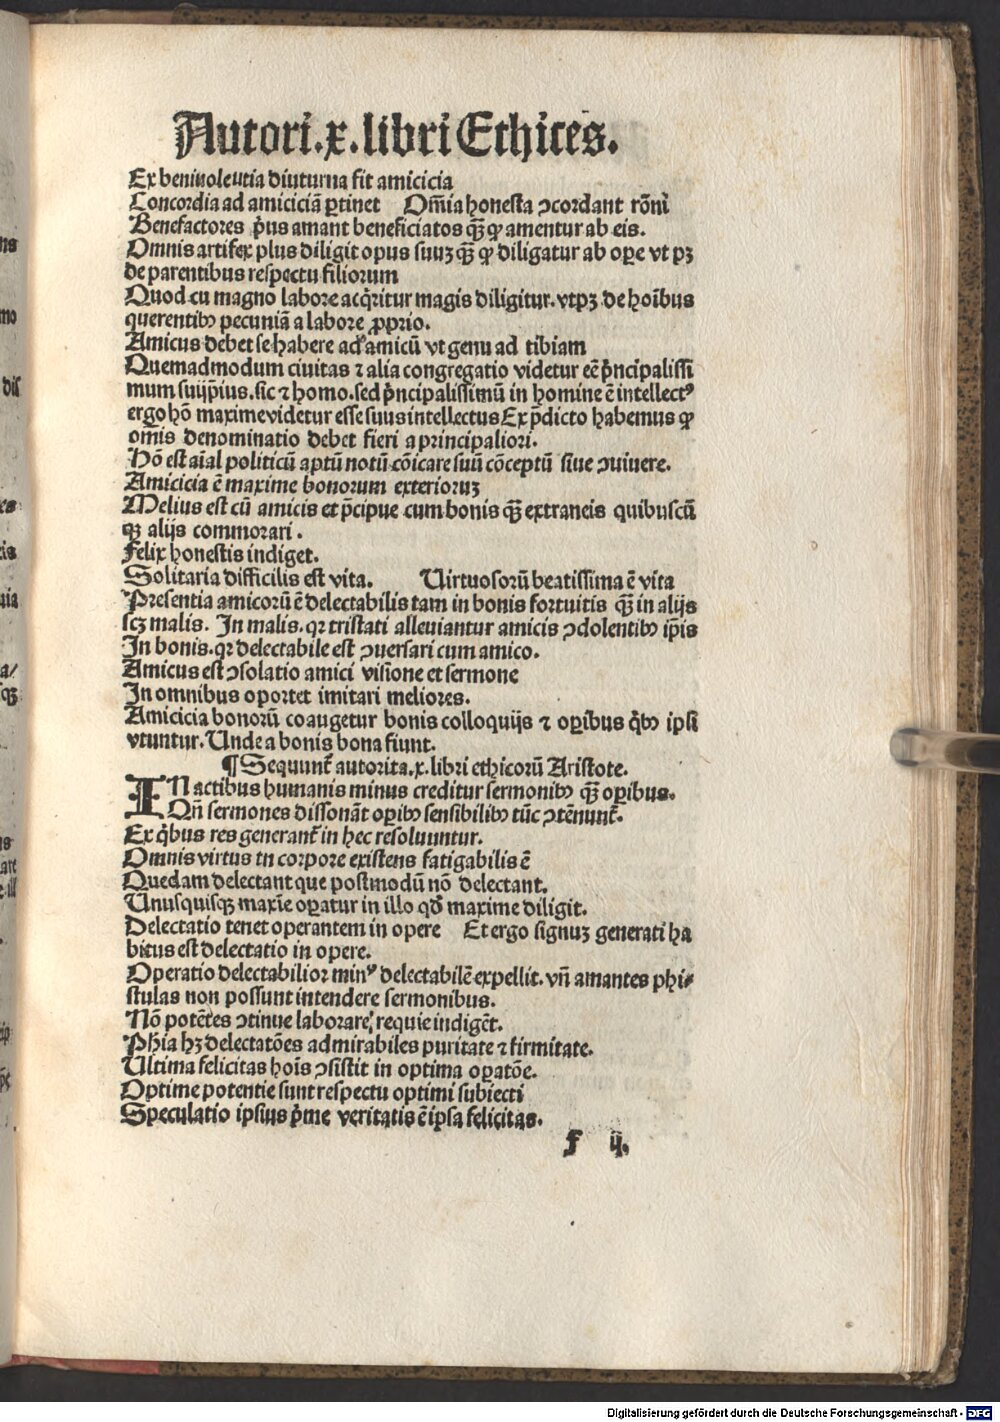 Autori.x.libri Ethices.
Ex beniuolentia diuturna fit amicicia
Concordia ad amiciciā ꝑtinet Om̄ia honesta ↄcordant rōni
Benefactores p̄us amant beneficiatos qꝫ̄ ꝙ amentur ab eis.
Omnis artifex plus diligit opus suuꝫ qꝫ̄ ꝙ diligatur ab oꝑe vt pꝫ
de parentibus respectu filiorum
Quod cu magno labore acq̇ritur magis diligitur. vtpꝫ de hoībus
querentibꝰ pecuniā a labore ꝓprio.
Amicus debet se habere ad amicū vt genu ad tibiam
Quemadmodum ciuitas ⁊ alia congregatio videtur eē p̄ncipalissi
mum suiip̄ius. sic ⁊ homo. sed p̄ncipalissimū in homine ē intellectꝰ
ergo hō maxime videtur esse suus intellectus Ex p̄dicto habemus ꝙ
omis denominatio debet fieri a principaliori.
Hō est aīal politicū aptū notū cōicare suū cōceptū siue ↄuiuere.
Amicicia ē maxime bonorum exterioruꝫ
Melius est cū amicis et p̄cipue cum bonis qꝫ̄ extraneis quibuscū
qꝫ alijs commorari.
Felix honestis indiget.
Solitaria difficilis est vita. Uirtuosorū beatissima ē vita
Presentia amicorū ē delectabilis tam in bonis fortuitis qꝫ̄ in alijs
scꝫ malis. In malis. qꝛ tristati alleuiantur amicis ↄdolentibꝰ ip̄is
In bonis. qꝛ delectabile est ↄuersari cum amico.
Amicus est ↄsolatio amici visione et sermone
In omnibus oportet imitari meliores.
Amicicia bonorū coaugetur bonis colloquijs ⁊ oꝑibus q̇bꝰ ipsi
vtuntur. Unde a bonis bona fiunt.
¶ Sequunt̄ autorita. x. libri ethicorū Aristote.
IN actibus humanis minus creditur sermonibꝰ qꝫ̄ oꝑibus.
Qn̄ sermones dissonāt oꝑibꝰ sensibilibꝰ tūc ↄtēnunt̄.
Ex q̇bus res generant̄ in hec resoluuntur.
Omnis virtus in corpore existens fatigabilis ē
Quedam delectant que postmodū nō delectant.
Unusquisqꝫ maxīe oꝑatur in illo qđ maxime diligit.
Delectatio tenet operantem in opere Et ergo signuꝫ generati ha
bitus est delectatio in opere.
Operatio delectabilior minꝰ delectabilē expellit. vn̄ amantes phi⸗
stulas non possunt intendere sermonibus.
Nō potētes ↄtinue laborare, requie indigēt.
Ph̄ia hꝫ delectatōes admirabiles puritate ⁊ firmitate.
Ultima felicitas hoīs ↄsistit in optima oꝑatōe.
Optime potentie sunt respectu optimi subiecti
Speculatio ipsius p̄me veritatis ē ipsa felicitas.
f ij.
Digitalisierung gefördert durch die Deutsche Forschungsgemeinschaft - DFG